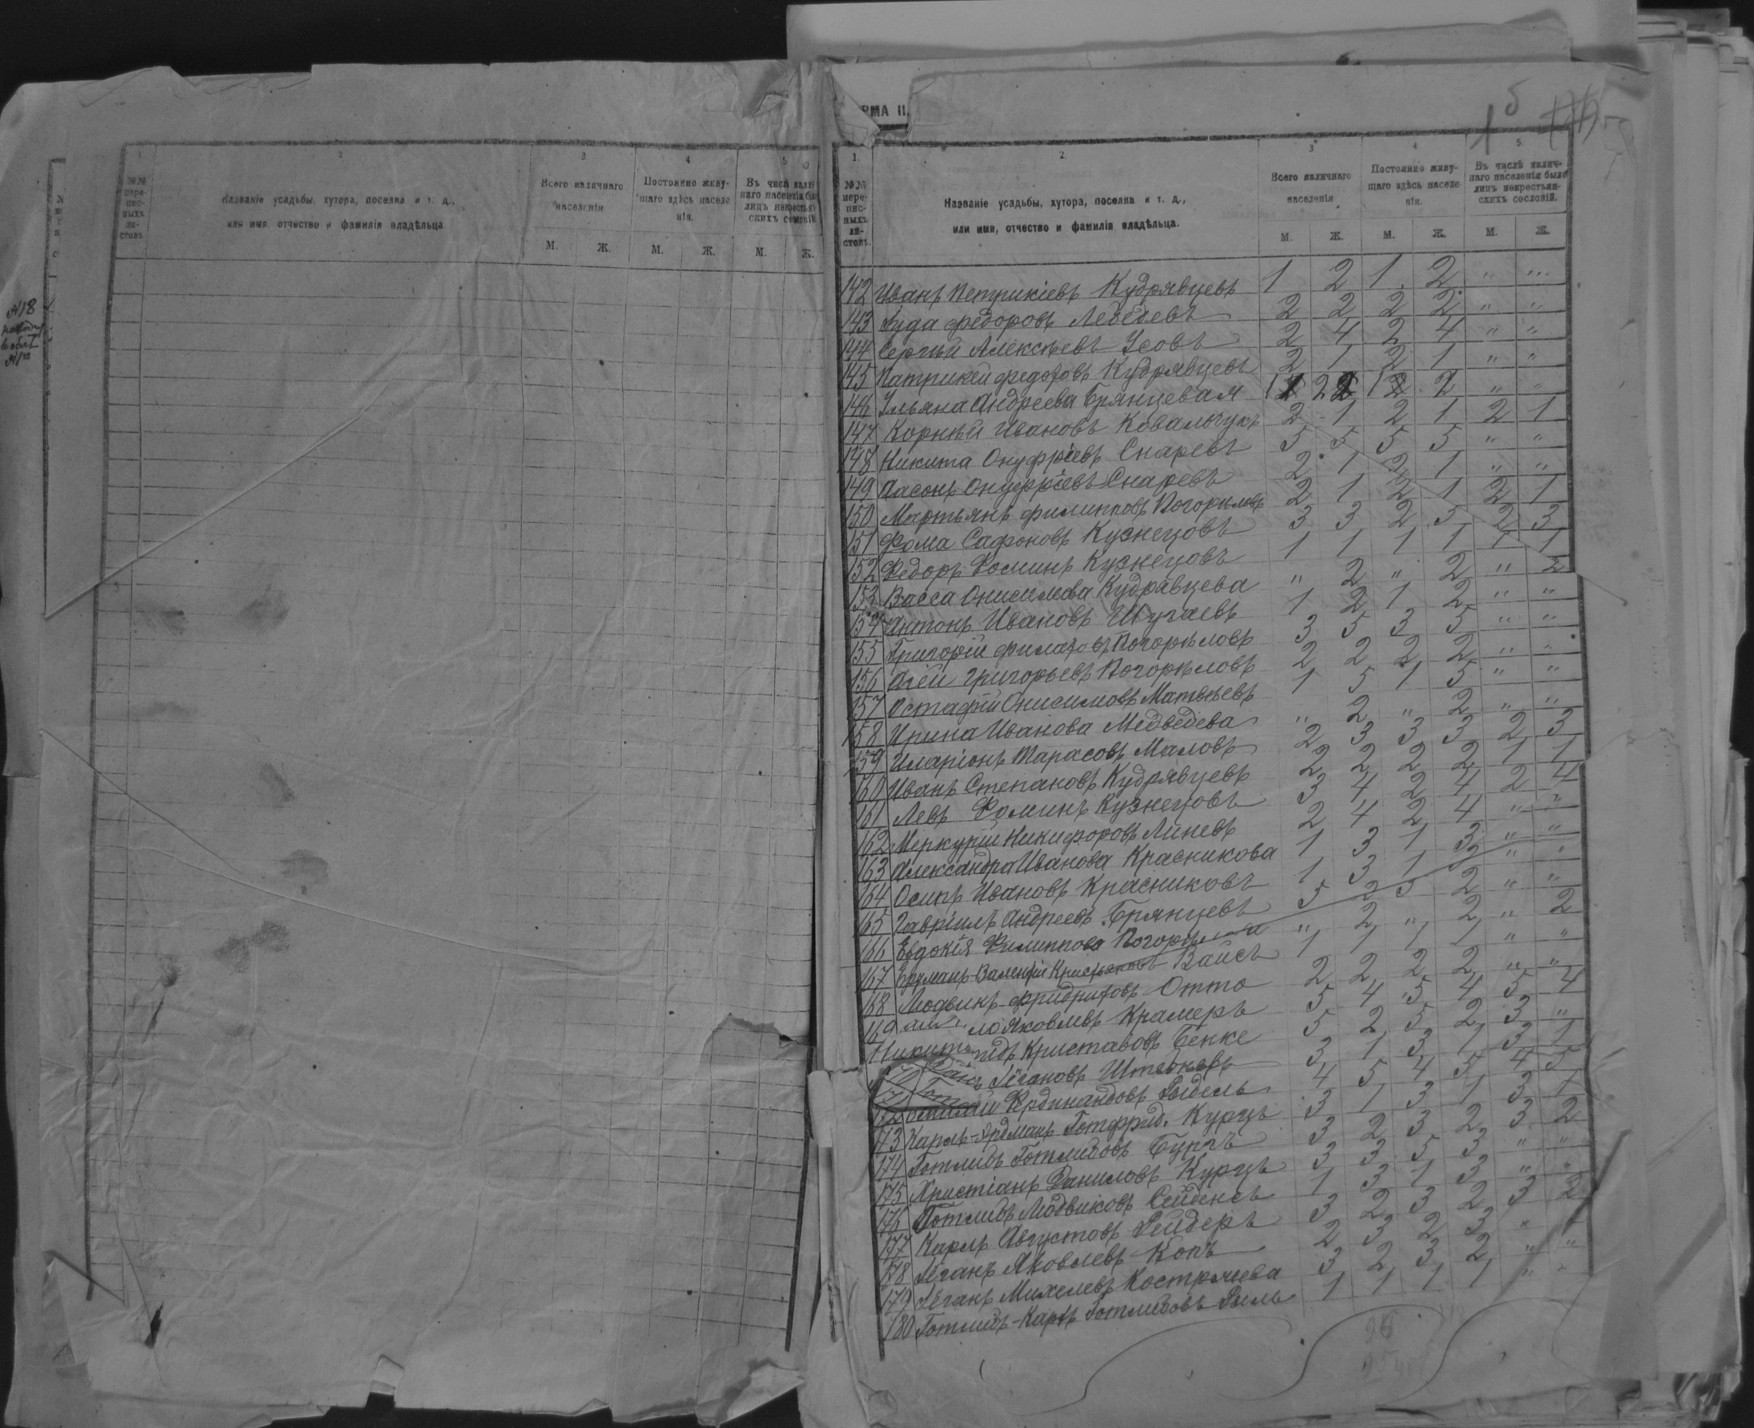 №18
1
2
3
4
5
№№ пере-
пис-
ныхъ
ли-
стовъ.
Названіе усадьбы, хутора, поселка и т. д.,
или имя отчество и фамилія владѣльца
Всего наличнаго
населенія
Постоянно живу-
щаго здѣсь населе
нія.
Въ числѣ налич
наго населенія бы
лицъ некрестья
скихъ сословій
М. Ж. М. Ж. М. Ж.
РМА II.
1.
2.
3
4
5.
№№
пере-
пис-
ныхъ
ли-
стовъ.
Названіе усадьбы, хутора, поселка и т. д.,
или имя, отчество и фамилія владѣльца.
Всего наличнаго
населенія
Постоянно живу-
щаго здѣсь населе
нія.
Въ числѣ налич-
наго населенія было
лицъ некрестьян-
скихъ сословій.
М. Ж. М. Ж. М. Ж.
142 Иванъ Патрикіевъ Кудрявцевъ 1 2 1 2 " "
143 Іуда Федоровъ Лебедевъ 2 2 2 2 " "
144 Сергѣй Алексѣевъ Усовъ 2 4 2 4 " "
145 Патрикей Федоровъ Кудрявцевъ 2 1 2 1 " "
146 Ульяна Андреева Брянцевая
147 Корнѣй Ивановъ Ковальчукъ 2 1 2 1 2 1
148 Никита Онуфріевъ Снаревъ 5 5 5 5 " "
149 Іасонъ Онуфріевъ Снаревъ 2 1 2 1 " "
150 Мартьянъ Филипповъ Погорѣловъ 2 1 2 1 2 1
151 Фома Сафоновъ Кузнецовъ 3 3 2 3 2 3
152 Федоръ Фоминъ Кузнецовъ 1 1 1 1 1 1
153 Васса Онисимова Кудрявцева " 2 " 2 " 2
154 Антонъ Ивановъ Шугаевъ 1 2 1 2 " "
155 Григорій Филатовъ Погорѣловъ 3 5 3 5 " "
156 Агей Григорьевъ Погорѣловъ 2 2 2 2 " "
157 Остафій Онисимовъ Матвѣевъ 1 5 1 5 " "
158 Ирина Иванова Медведева " 2 " 2 " "
159 Иларіонъ Тарасовъ Маловъ 2 3 3 3 2 3
160 Иванъ Степановъ Кудрявцевъ 2 2 2 2 1 1
161 Левъ Фоминъ Кузнецовъ 3 4 2 4 2 4
162 Меркурій Никифоровъ Линевъ 2 4 2 4 " "
163 Александра Иванова Красникова 1 3 1 3 " "
164 Осипъ Ивановъ Красниковъ 1 3 1 3 " "
165 Гавріилъ Андреевъ Брянцевъ 5 2 5 2 " "
166 Евдокія Филиппова " 2 " 2 " 2
167 Вайсъ 1 1 1 1 " "
168 Людвикъ Фридриховъ Отто 2 2 2 2 " "
169 Яковлевъ Крамеръ 5 4 5 4 5 4
Криставовъ Бенке 5 2 5 2 3 "
Іогановъ 3 1 3 1 3 1
172 Фердинандовъ 4 5 4 5 4 5
173 Карлъ-Эрдманъ Готфрид. Курцъ 3 1 3 1 3 1
174 Готлибъ Готлибовъ 3 2 3 2 3 2
175 Христіанъ Даниловъ Курцъ 3 3 5 3 " "
176 Готлибъ Людвиковъ 1 3 1 3 " "
177 Карлъ Августовъ 3 2 3 2 3 2
178 Іоганъ Яковлевъ Копъ 2 3 2 3 " "
179 Іоганъ Михелевъ 3 2 3 2 " "
180 Готлибъ-Карлъ Готлибовъ 1 1 1 1 " "